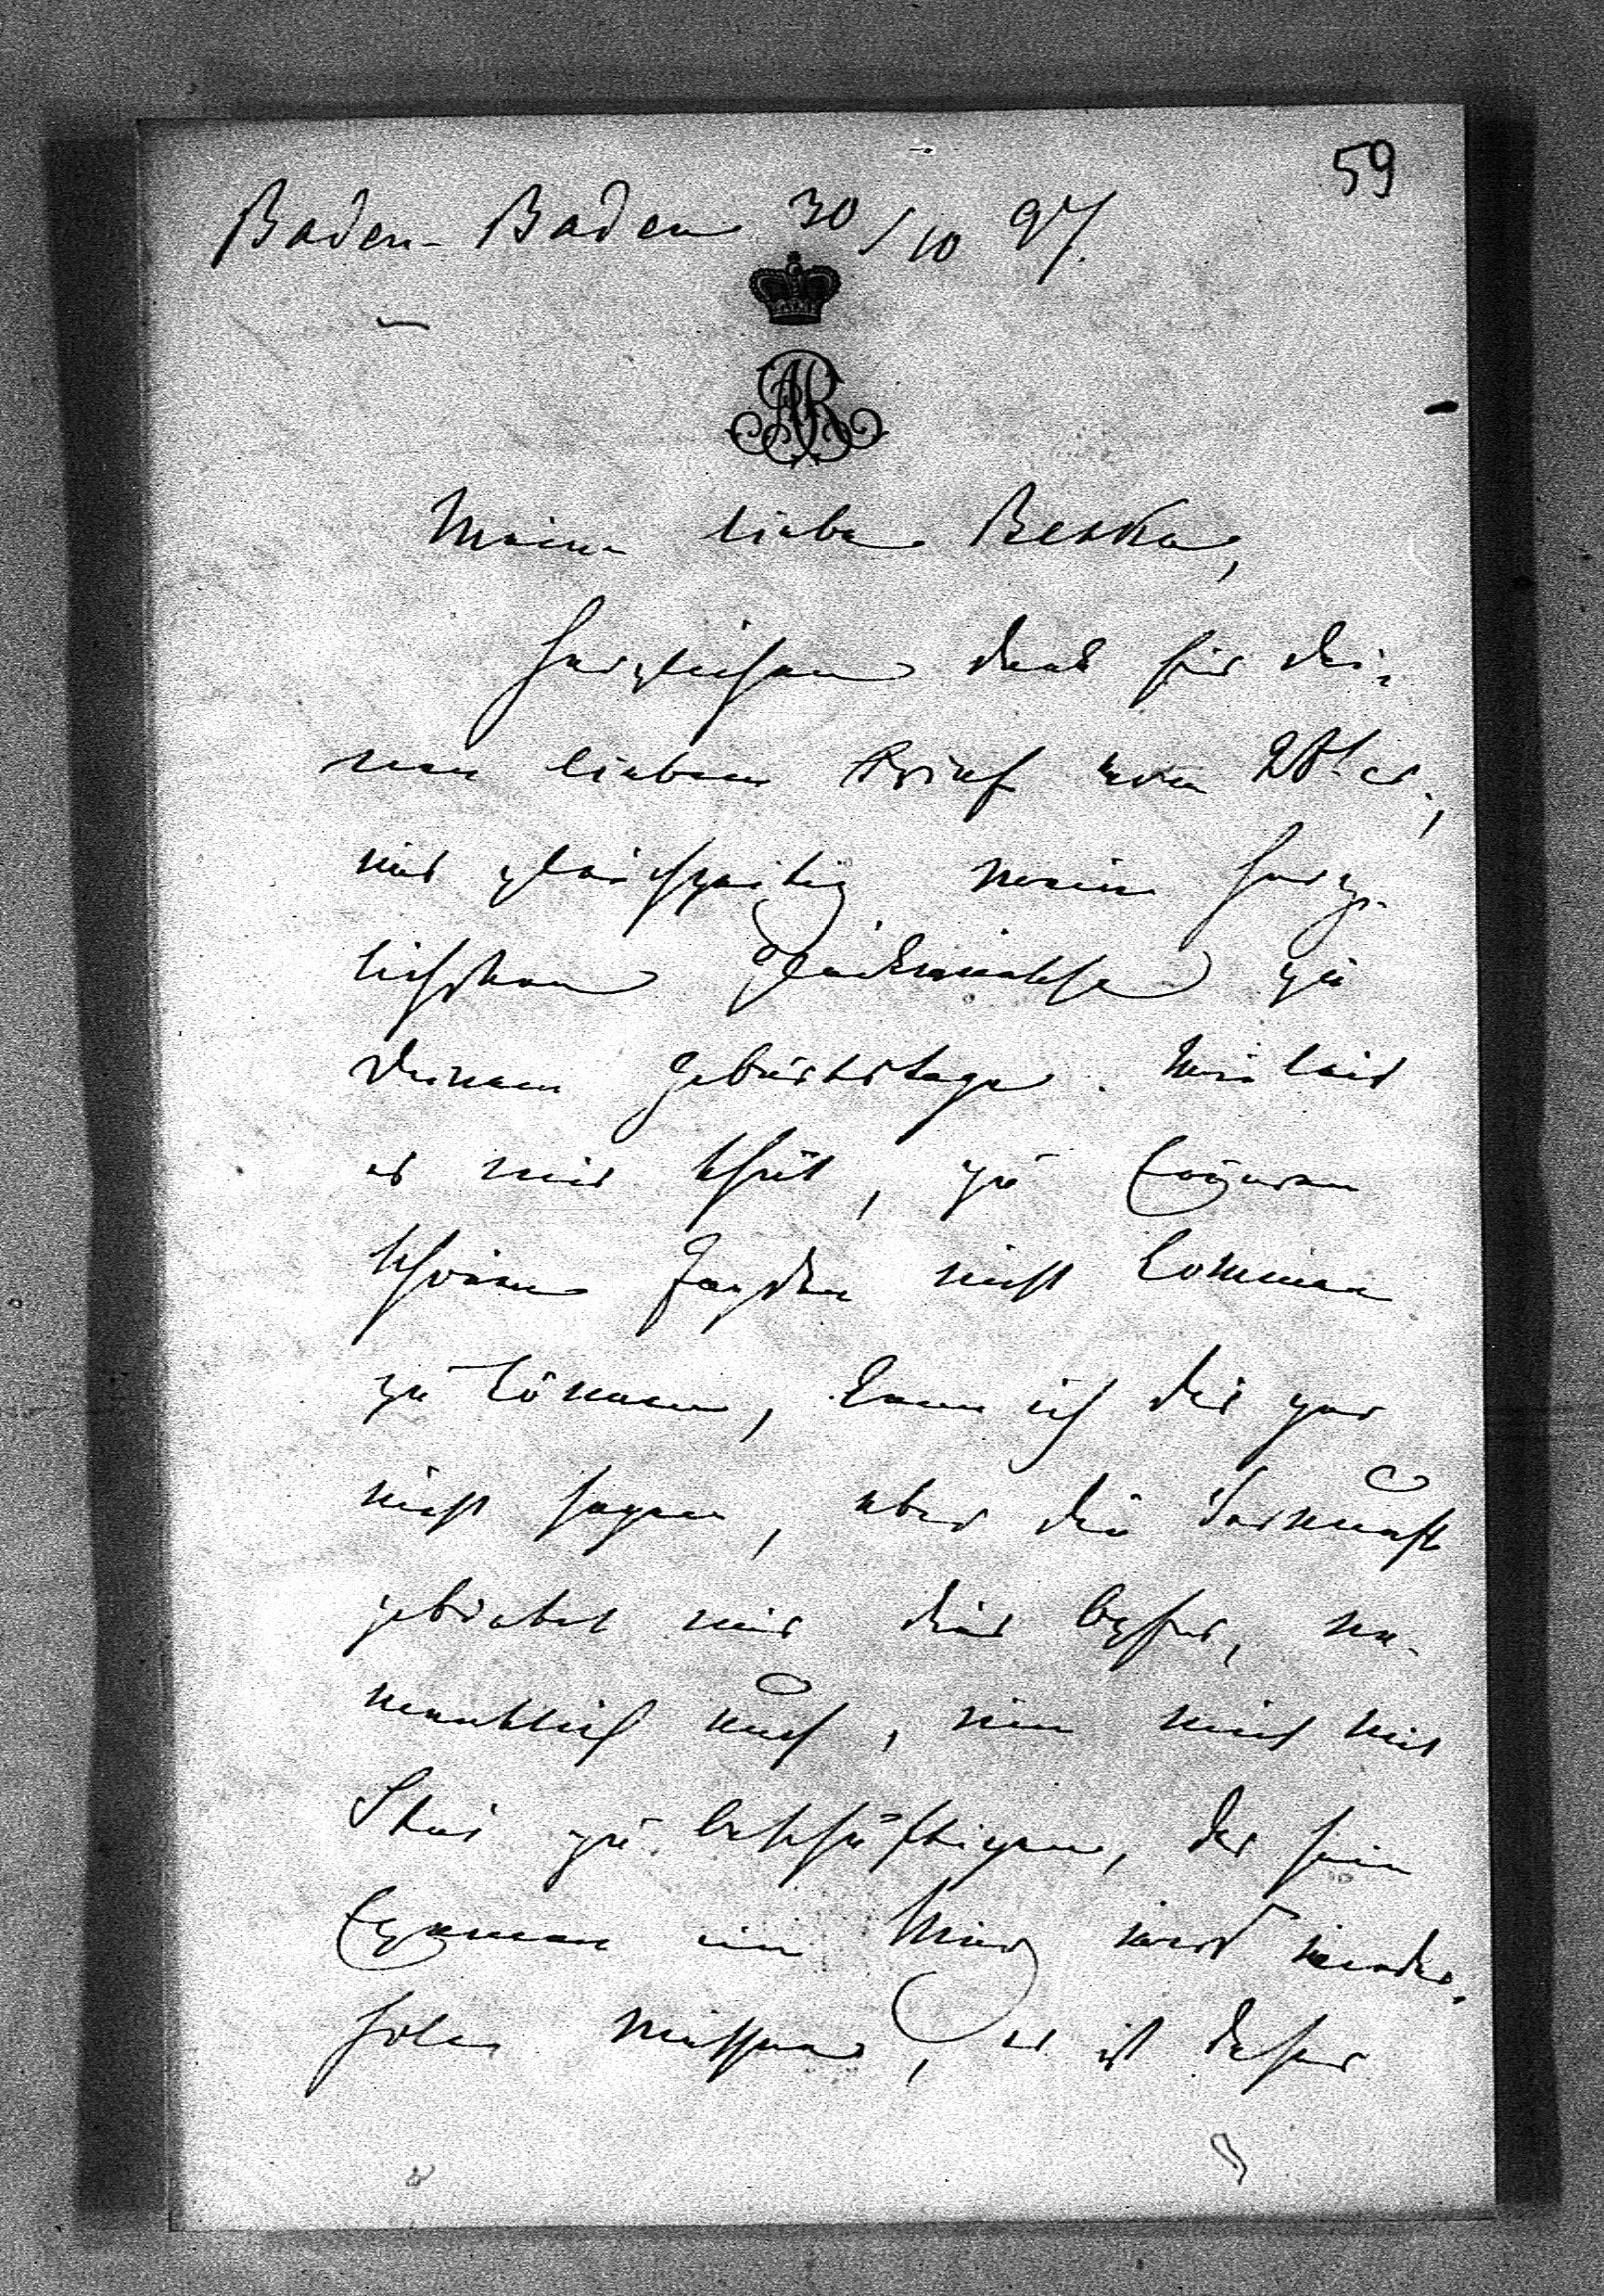 59
Baden-Baden 30/10 97.
AR
Meine liebe Berka,
herzlichen Dank für Dei-
nen lieben Brief vom 28t. cr.,
mit gleichzeitig meine herz-
lichsten Glückwünsche zu
Deinem Geburtstage. Wie leid
es mir thut, zu Eueren
schönen Jagden nicht kommen
zu können, kann ich Dir gar
nicht sagen, aber die Vernunft
gebietet mir dies Opfer, na-
mentlich auch, um mich mit
zu beschäftigen, der sein
Examen im März wird wieder-
holen müssen, es ist daher